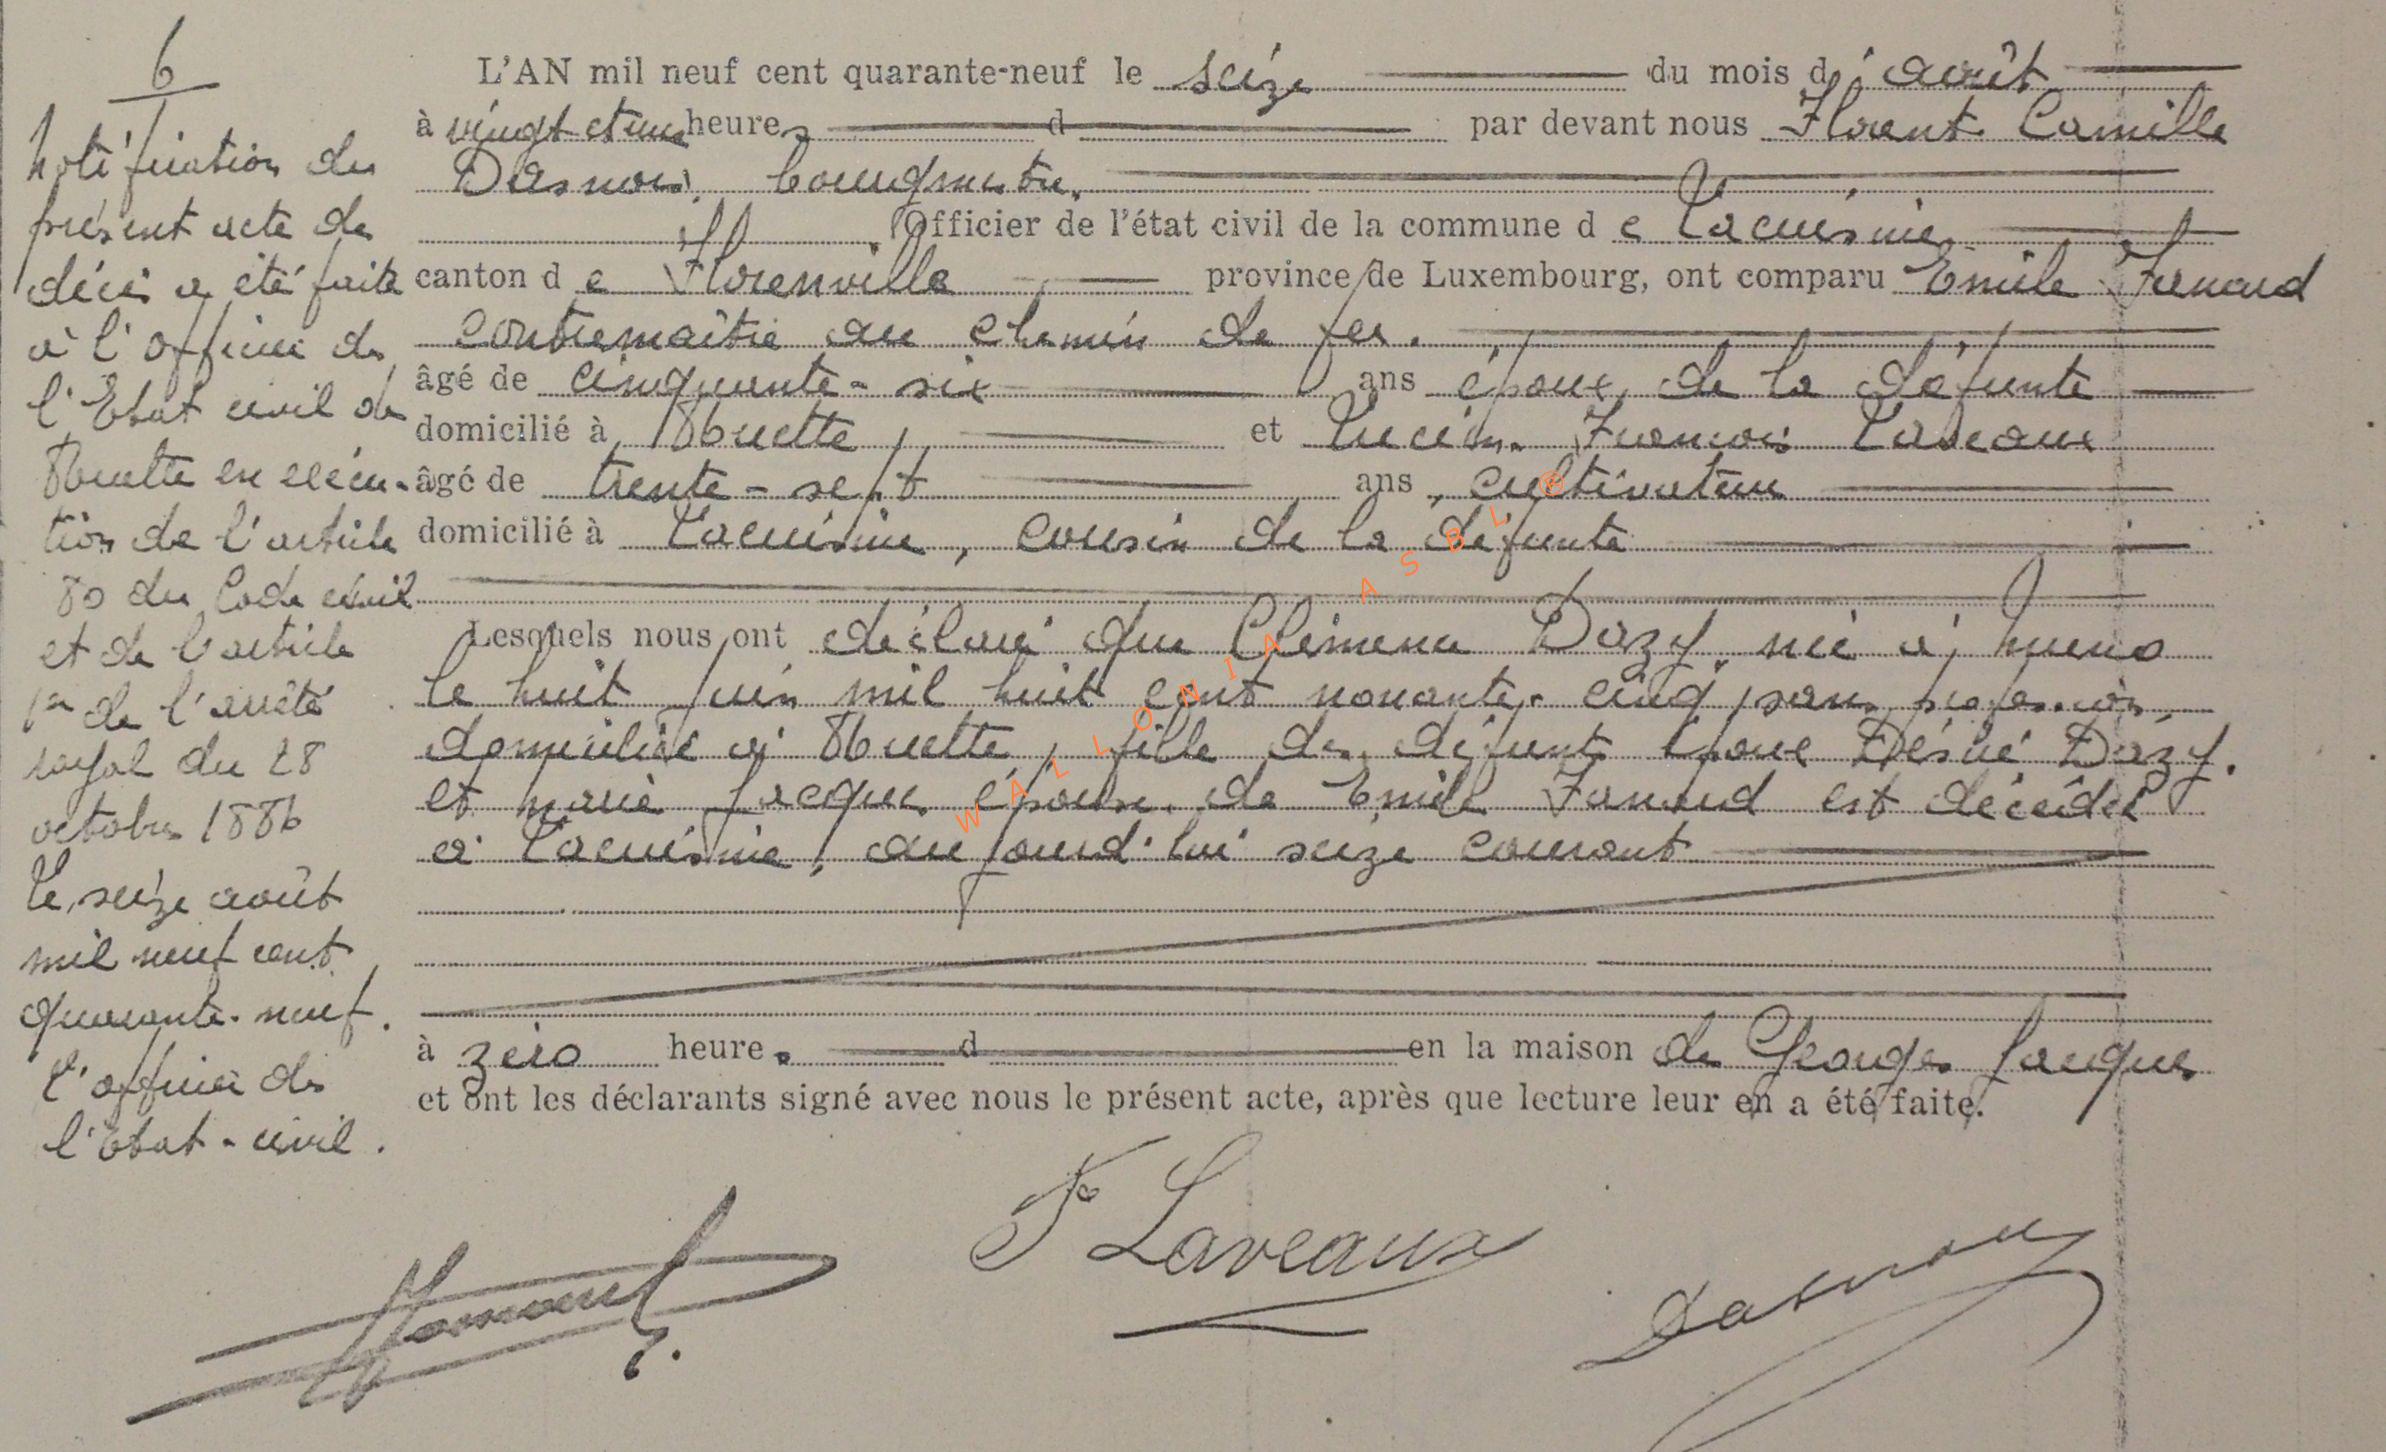 6
Notification du
présent acte de
décès a été faite
à l'Officier de
l'Etat civil de
Muette en exécu-
tion de l'article
80 du Code civil
et de l'article
1er de l'arrêté
royal du 28
octobre 1886
Le seize août
mil neuf cent
quarante-neuf.
L'officier de
l'Etat-civil.
L'AN mil neuf cent quarante-neuf le seize du mois d'août
à vingt et une heures d par devant nous Florent Camille
Dasnois, bourgmestre,
Officier de l'état civil de la commune de Lacuisine
canton de Florenville province de Luxembourg, ont comparu Emile
contremaître au chemin de fer.
âgé de cinquante-six ans époux de la défunte
domicilié à Muette, et Lucien François Laveaux
âgé de trente-sept ans, cultivateur
domicilié à Lacuisine, cousin de la défunte
Lesquels nous ont déclaré que Clémence Dazy, née à
le huit juin mil huit cent nonante-cinq, sans profession,
domiciliée à Muette, fille des défunts époux Désiré Dazy
et Marie Jacques, épouse de Emile est décédée
à Lacuisine, aujourd'hui seize courant
à zéro heure d en la maison de Georges Jacques
et ont les déclarants signé avec nous le présent acte, après que lecture leur en a été faite.
F Laveaux
Dasnoy
WALLONIA ASBL ®